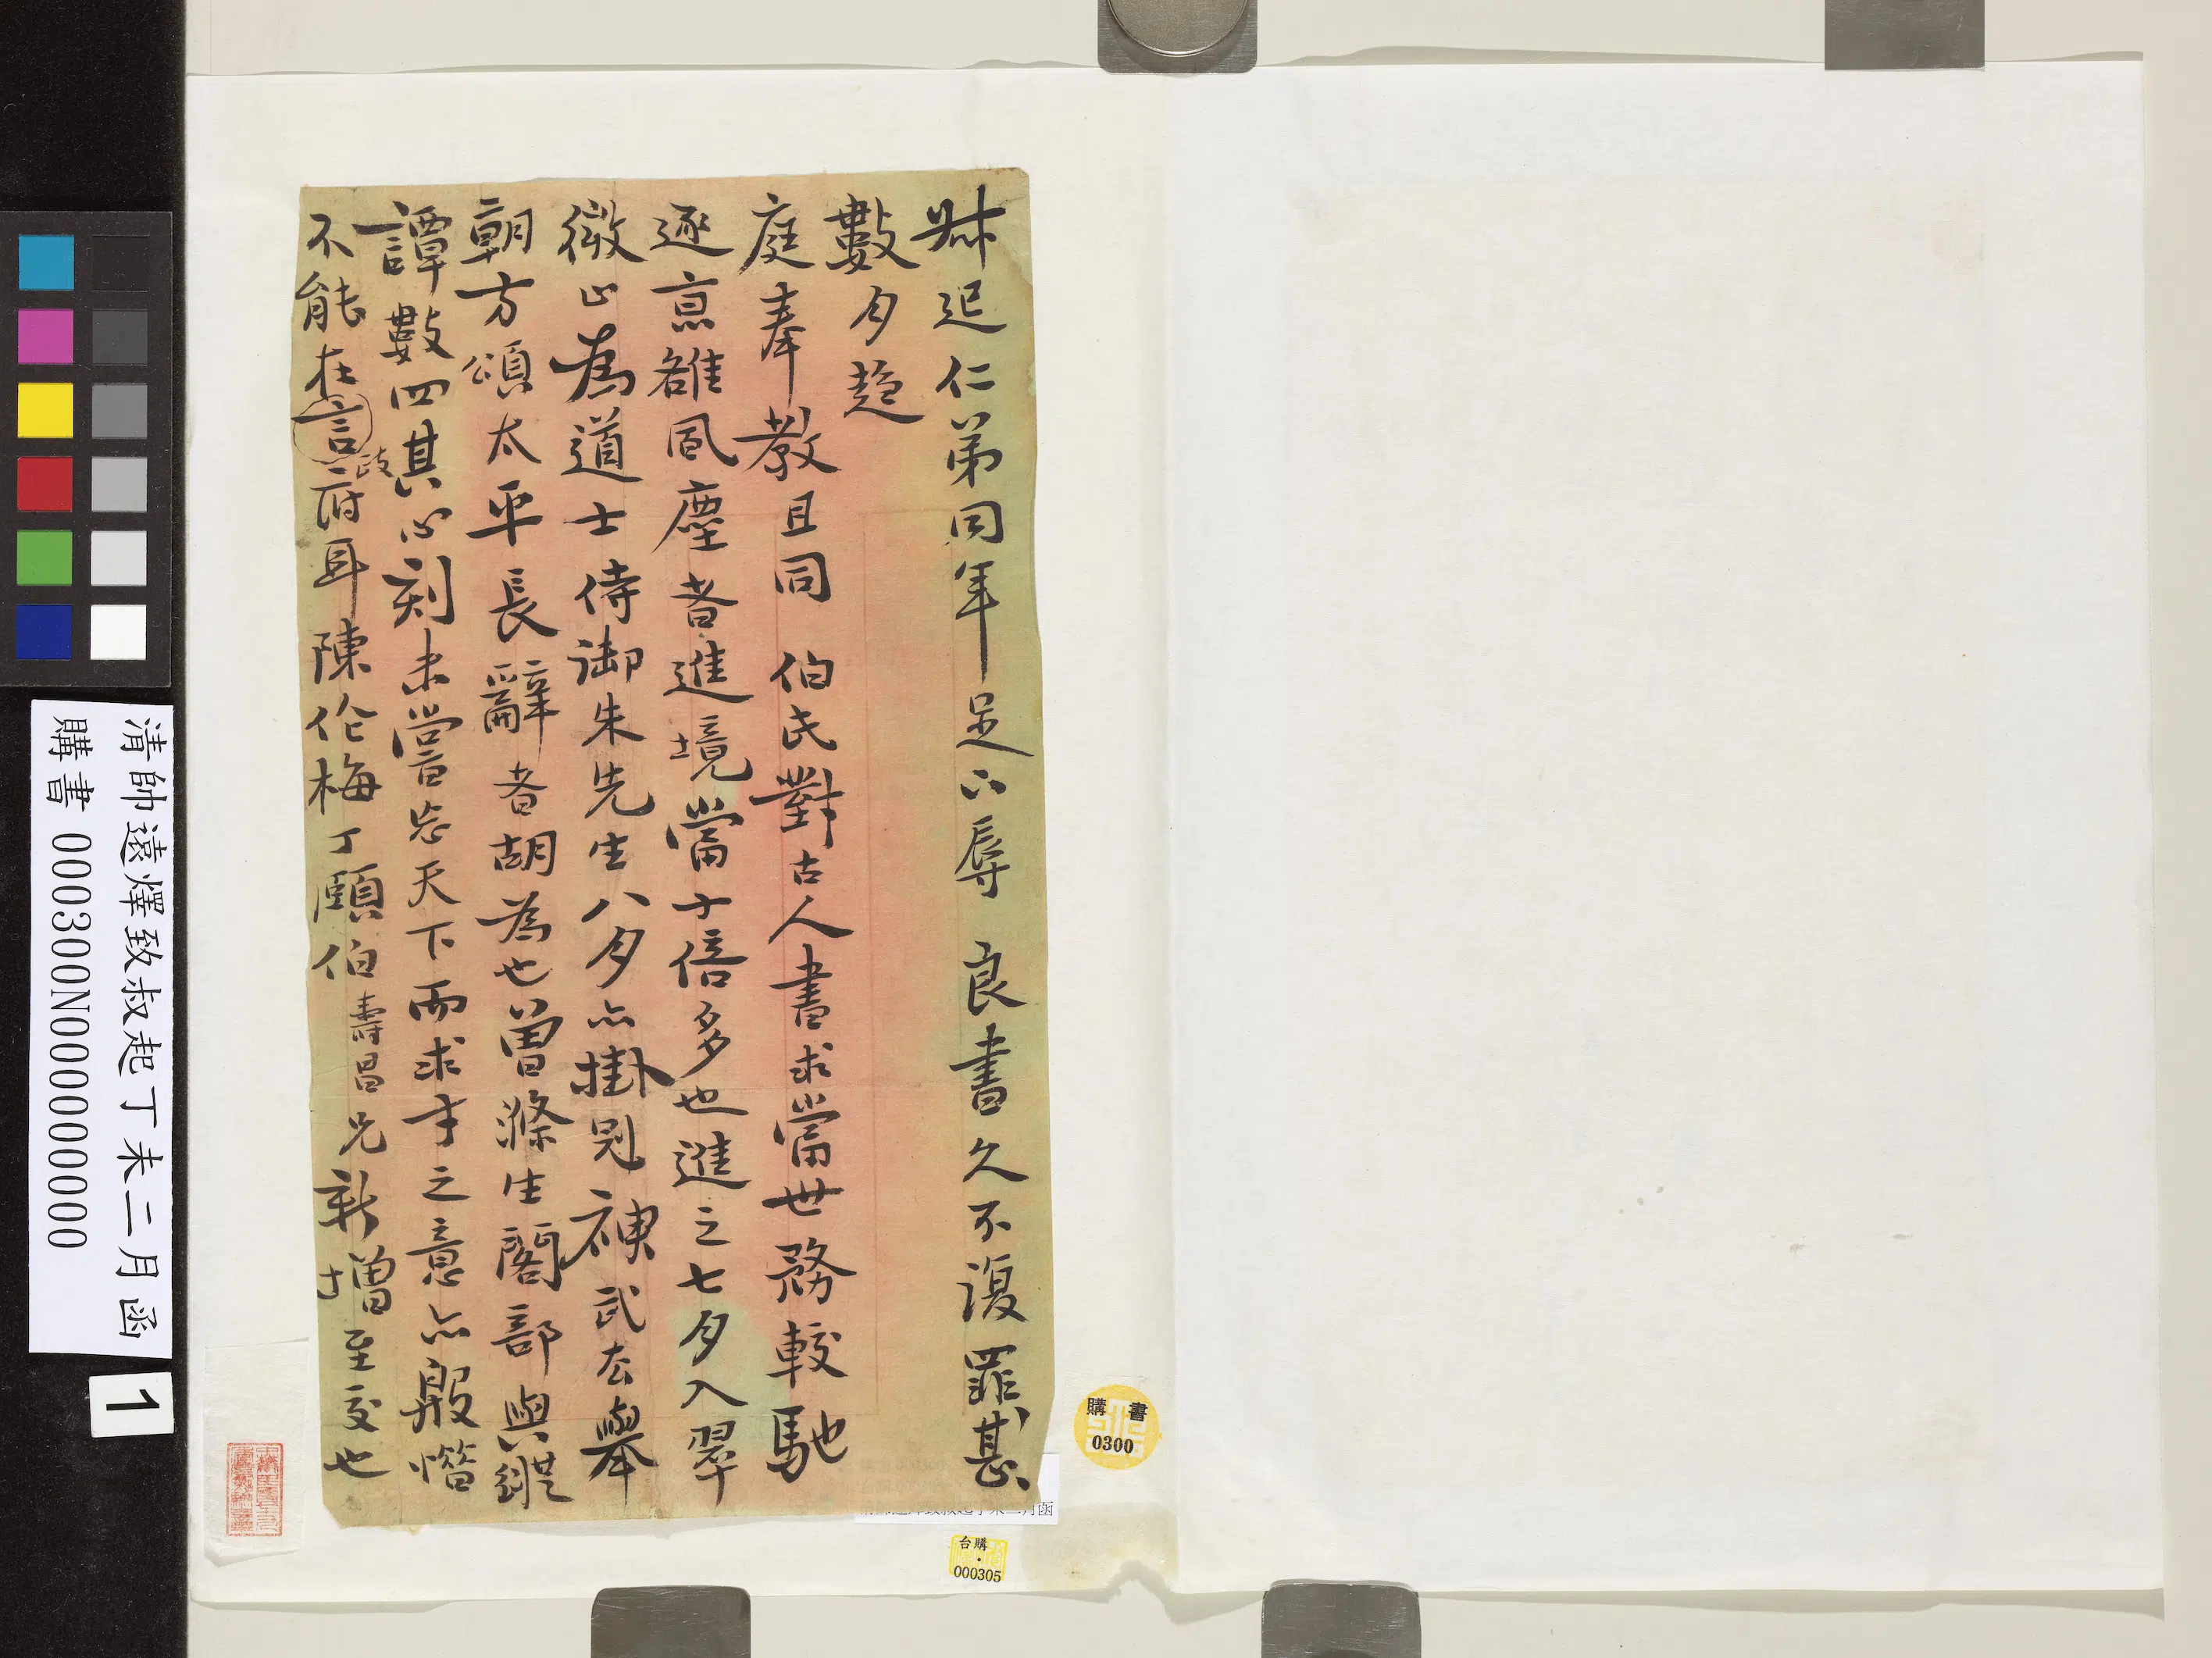 叔起仁弟同年足下辱　良書久不復罪甚
數月趨
庭奉教且同　伯氏對古人書求當世務較馳
逐京雒風塵者進境當十倍多也進之七月入翠
微山為道士侍御朱先生八月亦掛冠神武去舉
朝方頌太平長辭者胡為也曾滌生閣部與鍾
譚數四其心刻未嘗忘天下而求才之意亦殷憯
不能在言政府耳陳伧梅丁頤伯壽昌兄新增至交也
清帥遠燡致叔起丁未二月函
購書 000300N000000000
1
購書
0300
購台
000305